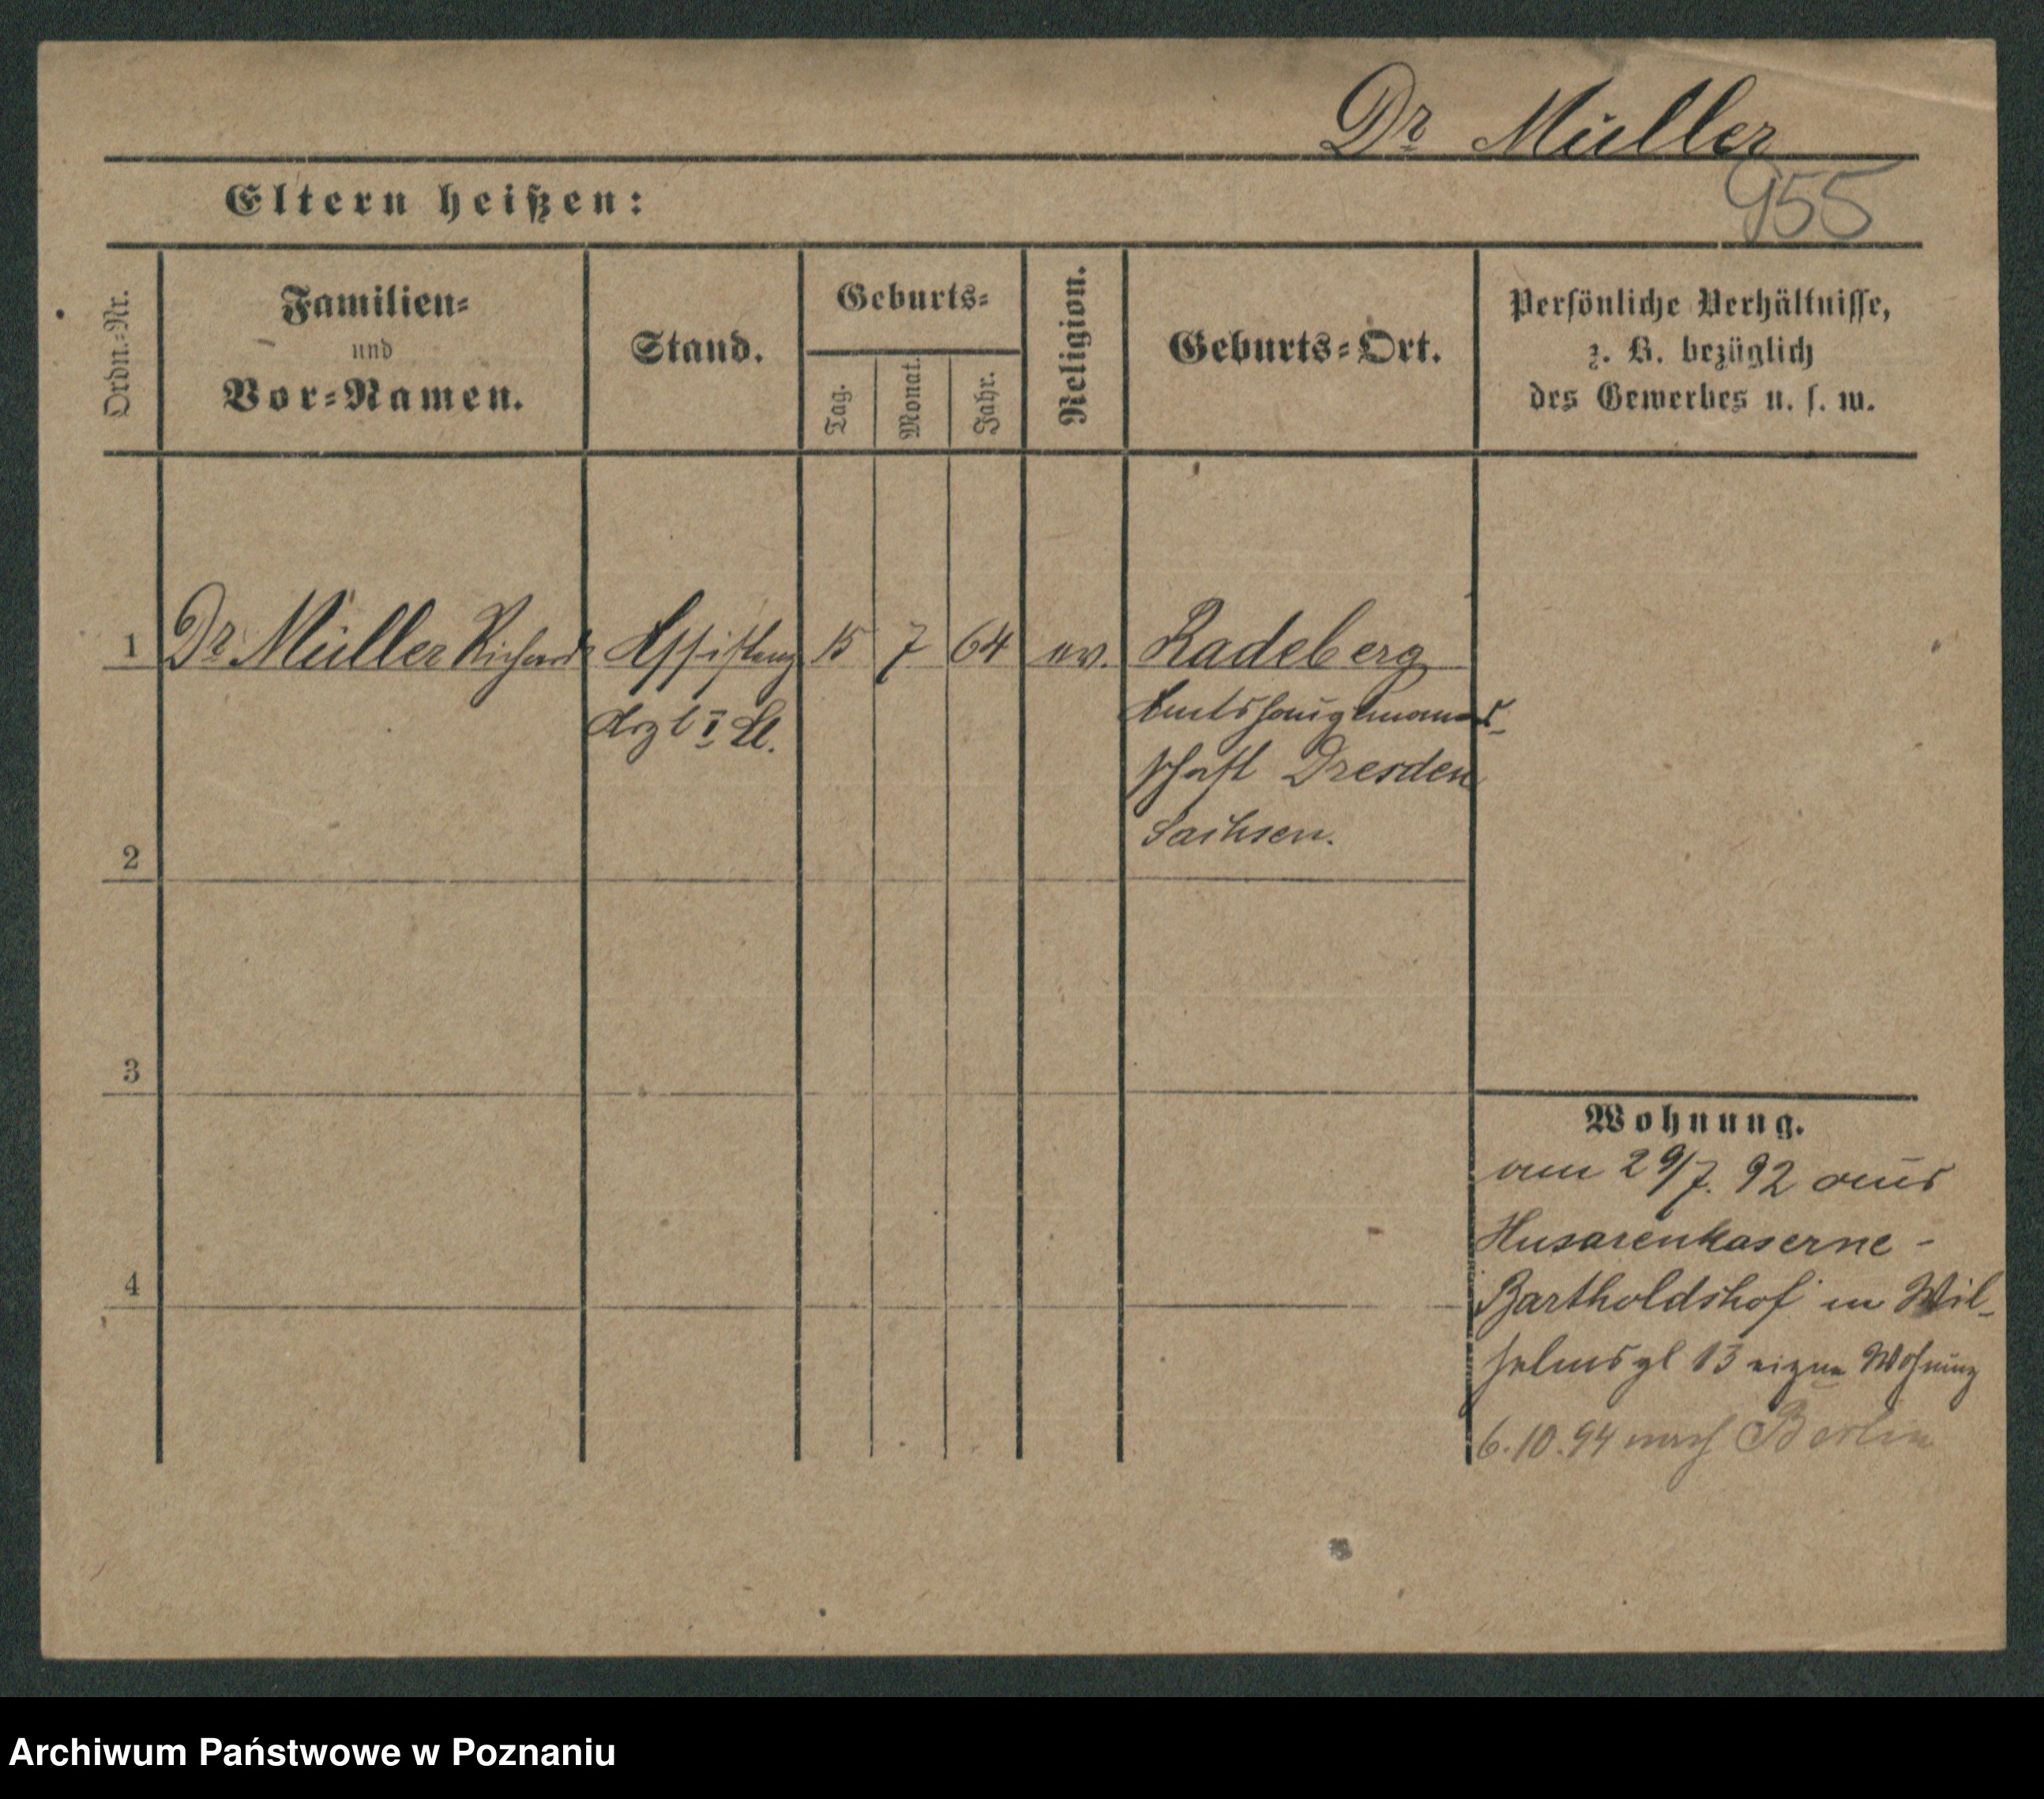 Dr Müller
955
Eltern heißen:
Ordn.-Nr.
Familien-
und
Vor-Namen.
Stand.
Geburts-
Tag.
Monat.
Jahr.
Religion.
Geburts-Ort.
Persönliche Verhältnisse,
z. B. bezüglich
des Gewerbes u. s. w.
1 Dr Müller Richard Assistenz 15 7 64 ev. Radeberg
Arzt I Kl. Amtshauptmanns-
schaft Dresden
Sachsen.
2
3
4
Wohnung.
am 29/7. 92 aus
Husarenkaserne -
Bartholdshof in Wil-
helmspl 13 eigne Wohnung
6.10.94 nach Berlin
Archiwum Państwowe w Poznaniu